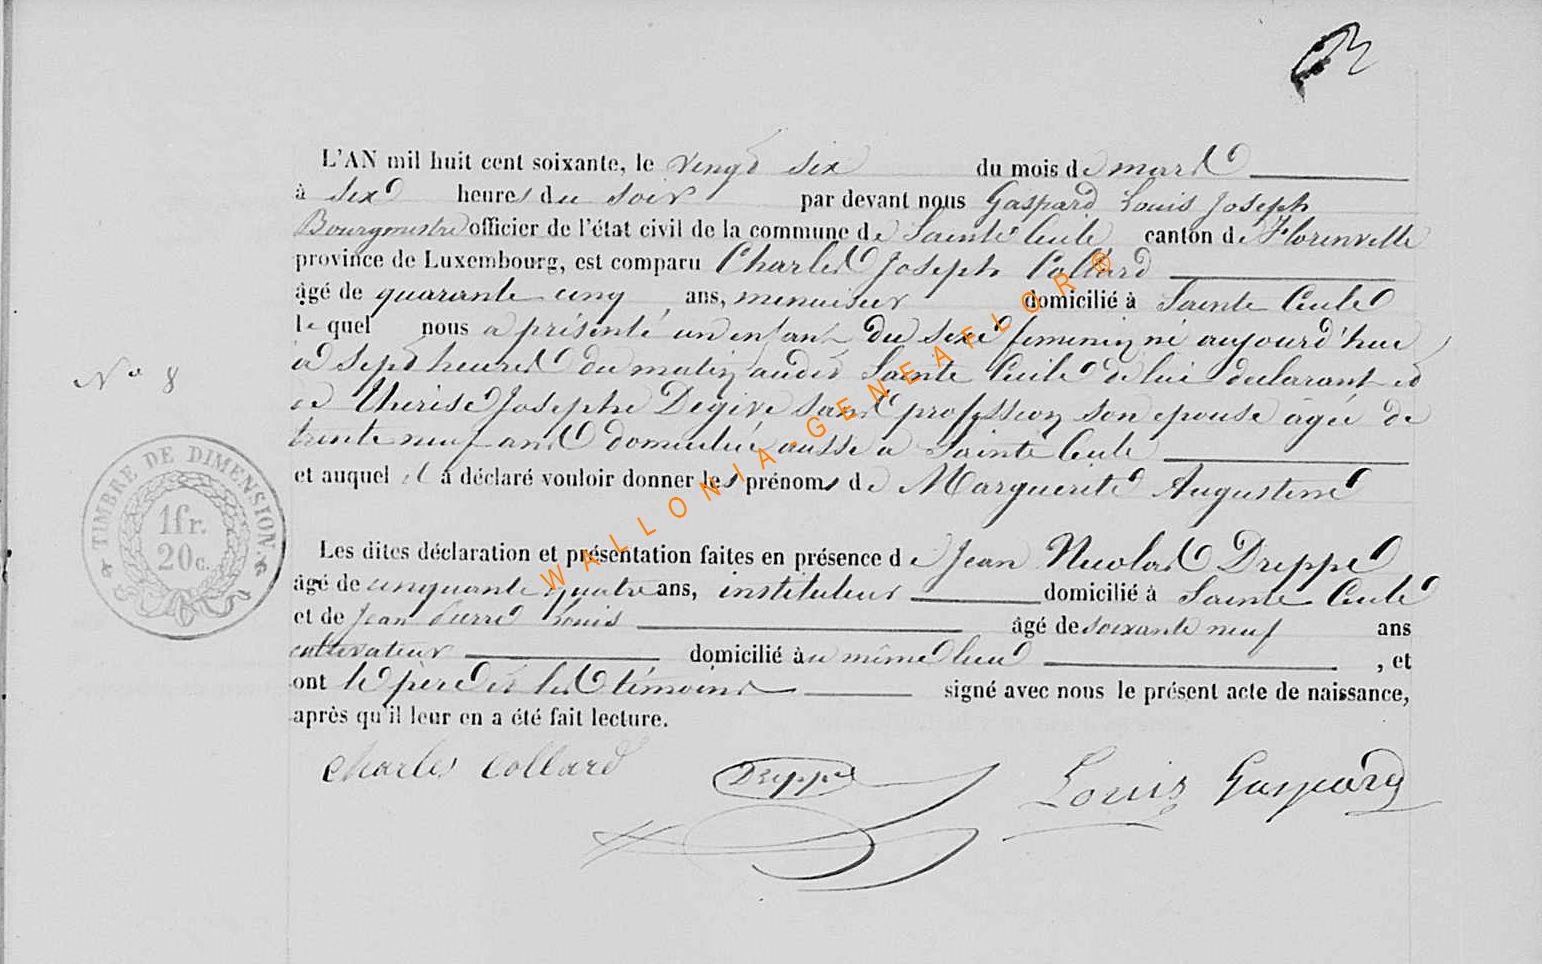 L'AN mil huit cent soixante, le vingt six du mois de mars
à six heures du soir par devant nous Gaspard Louis Joseph
Bourgmestre officier de l'état civil de la commune de Sainte Cecile canton de Florenville
province de Luxembourg, est comparu Charles Joseph Collard
âgé de quarante cinq ans, menuisier domicilié à Sainte Cecile
le quel nous a présenté un enfant du sexe feminin né aujourd'hui
à sept heures du matin audit Sainte Cecile de lui declarant et
de Thérise Josephe Degive sans profession son epouse âgée de
trente neuf ans domiciliée aussi a Sainte Cecile
et auquel il a déclaré vouloir donner les prénoms de Marguerite Augustine
N° 8
TIMBRE DE DIMENSION.
1fr.
20c.
Les dites déclaration et présentation faites en présence de Jean Nicolas Dreppe
âgé de cinquante quatre ans, instituteur domicilié à Sainte Cecile
et de Jean Pierre Louis âgé de soixante neuf ans
cultivateur domicilié au même lieu , et
ont le père et les témoins signé avec nous le présent acte de naissance,
après qu'il leur en a été fait lecture.
Charles Collard Dreppe Louis Gaspard
WALLONIA-GENEAFLOR ®